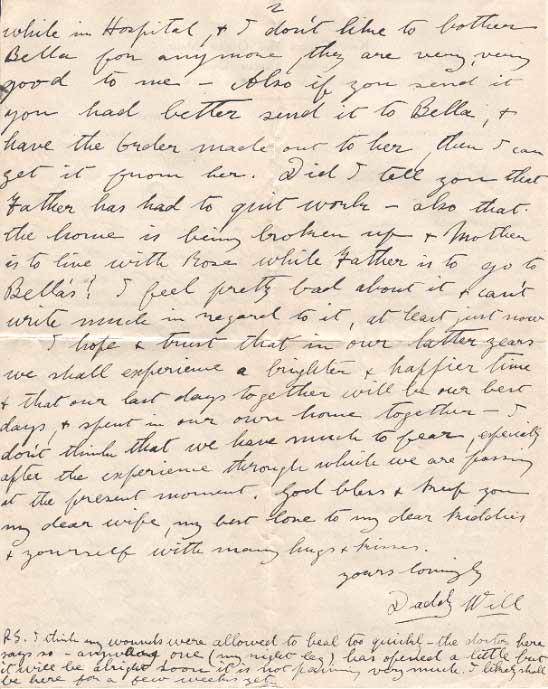 2
while in Hospital, & I don't like to bother
Bella for anymore, they are very, very
good to me – Also if you send it
you had better send it to Bella, &
have the order made out to her, then I can
get it from her. Did I tell you that
Father has had to quit work – also that
the home is being broken up & Mother
is to live with Rose while Father is to go to
Bella's? I feel pretty bad about it & can't
write much in regard to it, at least just now
I hope & trust that in our latter years
we shall experience a brighter & happier time
& that our last days together will be our best
days, & spent in our own home together – I
don't think that we have much to fear, especially
after the experience through which we are passing
at the present moment. God bless & keep you
my dear wife, my best love to my dear kiddies
& yourself with many hugs & kisses.
yours lovingly
Daddy Will
P.S. I think my wounds were allowed to heal too quickly – the doctor here
says so – anyway one (my right leg) has opened a little but
it will be alright soon it is not paining very much. I likely shall
be here for a few weeks yet